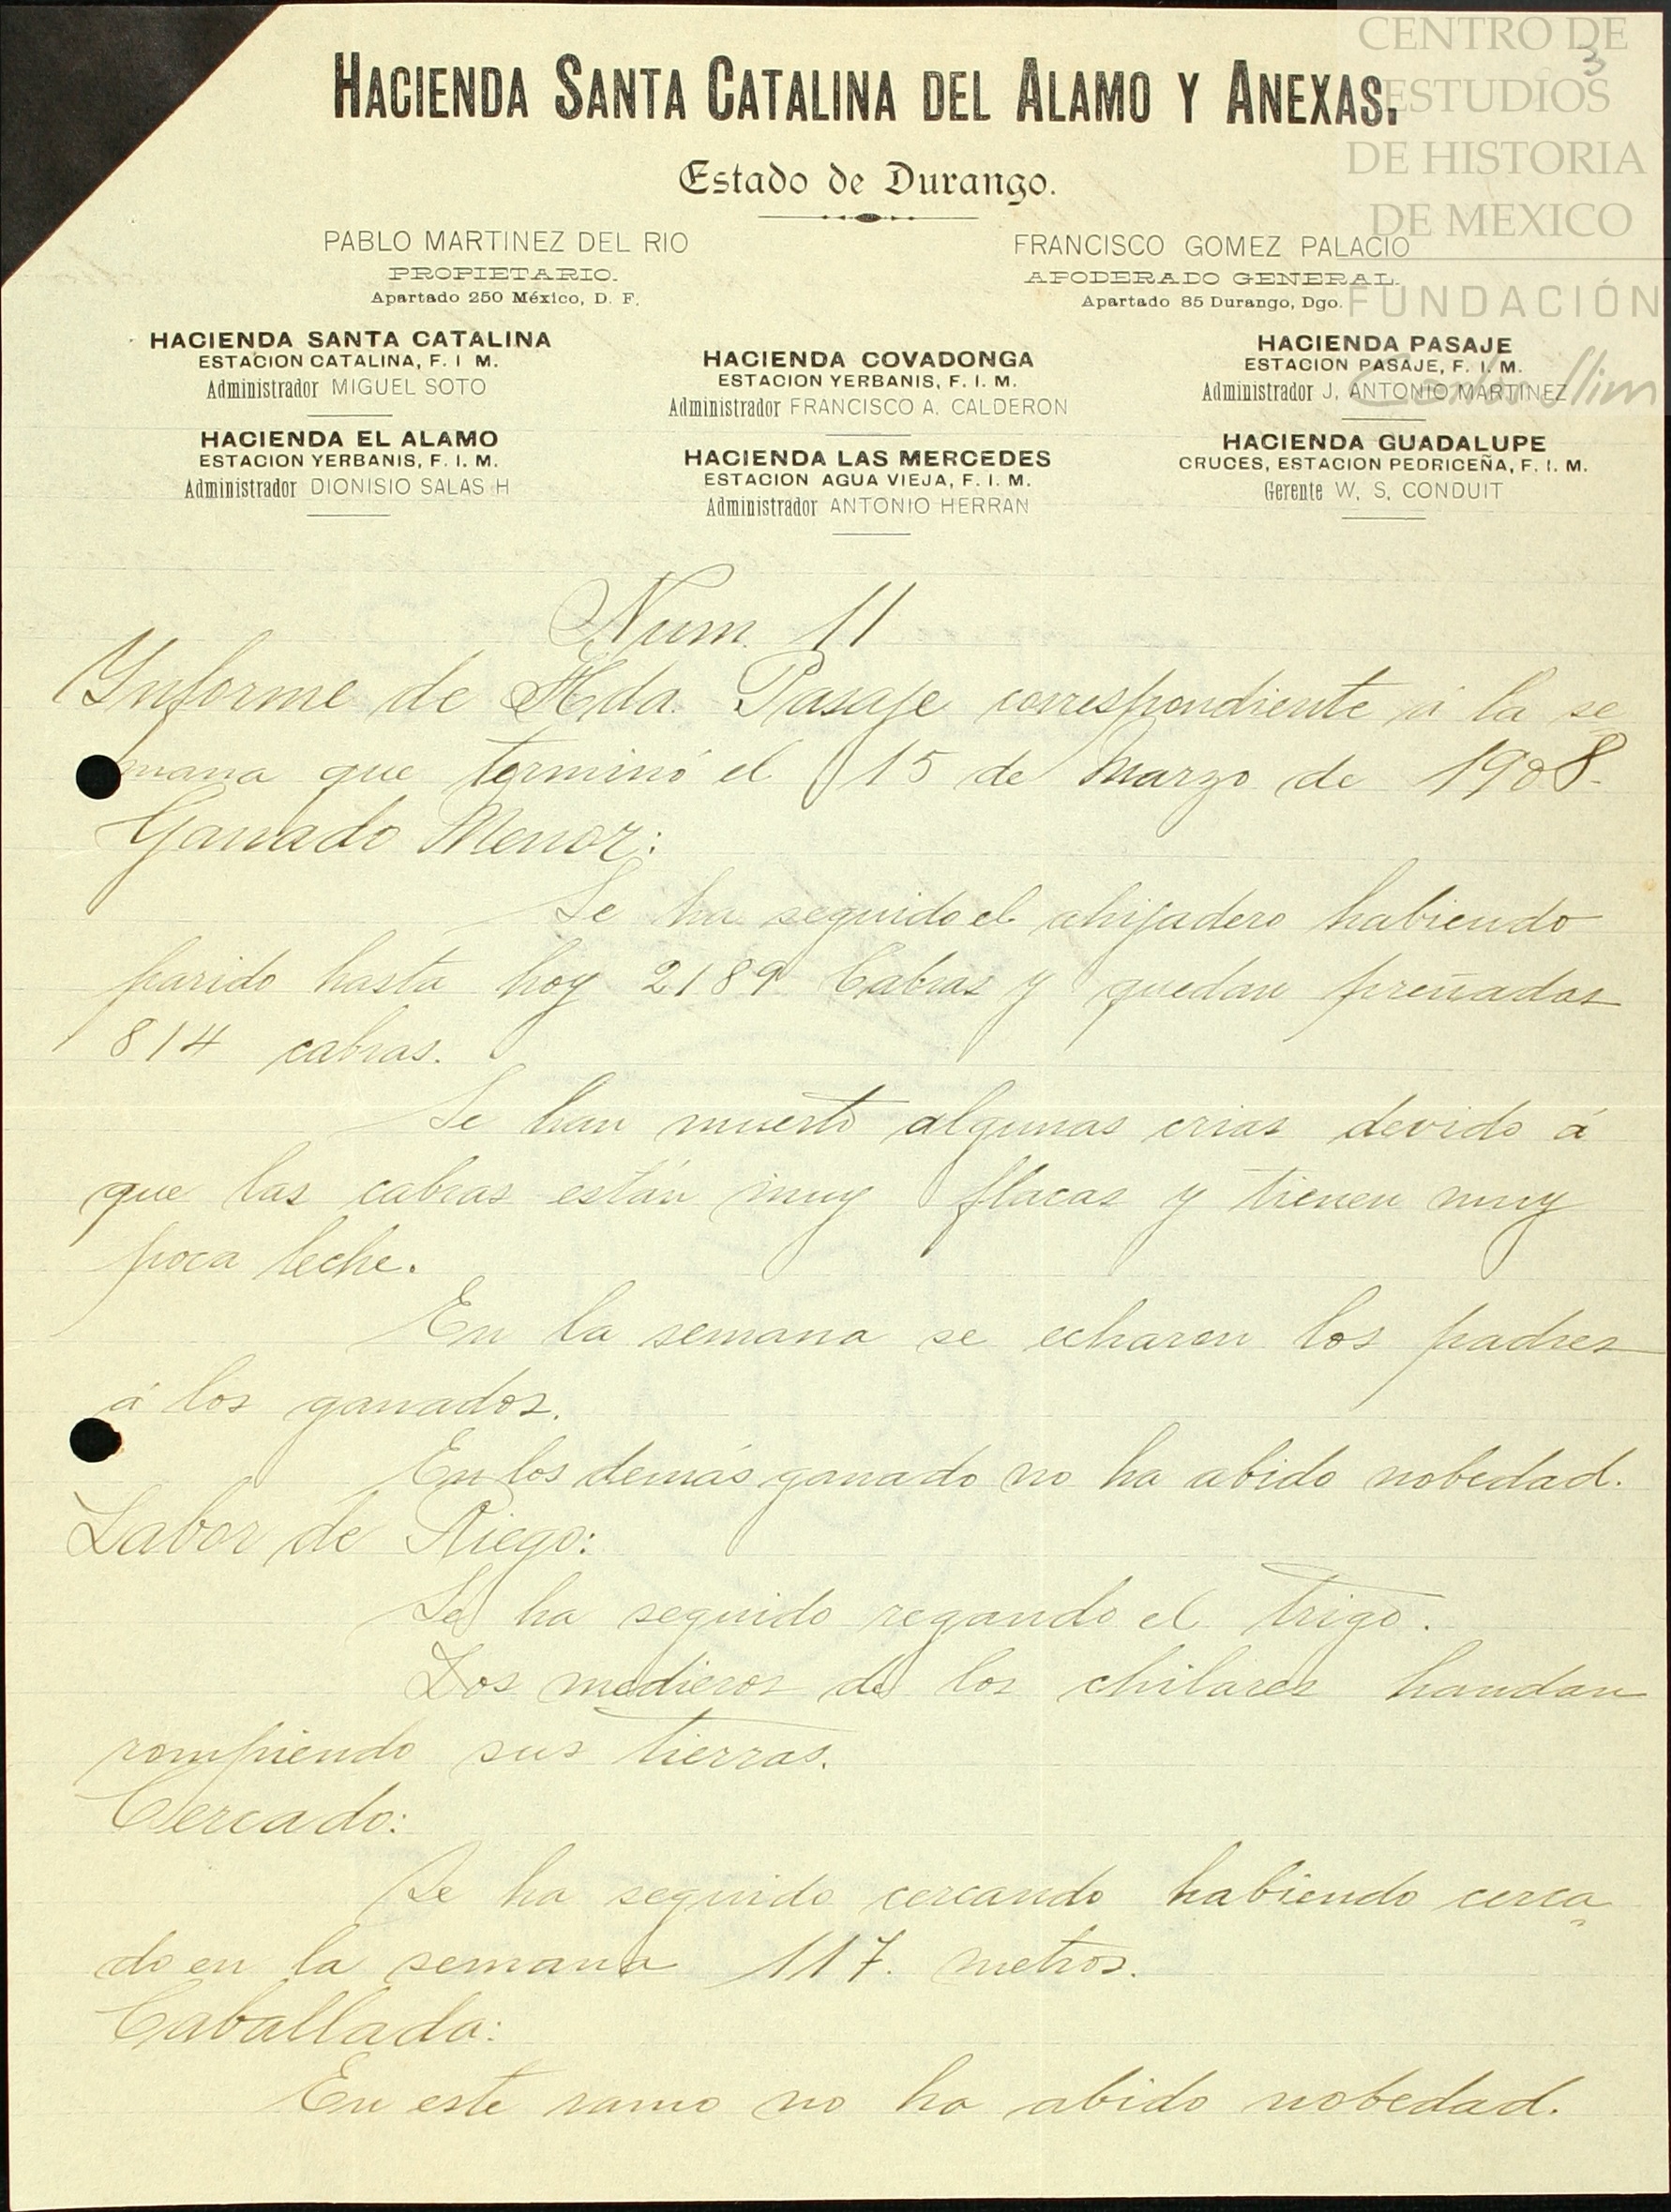 CENTRO DE
ESTUDIOS
DE HISTORIA
DE MEXICO
FUNDACIÓN
Carlos Slim
3
HACIENDA SANTA CATALINA DEL ALAMO Y ANEXAS.
Estado de Durango.
PABLO MARTINEZ DEL RIO
PROPIETARIO.
Apartado 250 México, D. F.
FRANCISCO GOMEZ PALACIO
APODERADO GENERAL.
Apartado 85 Durango, Dgo.
HACIENDA SANTA CATALINA
ESTACION CATALINA, F. I M.
Administrador MIGUEL SOTO
HACIENDA EL ALAMO
ESTACION YERBANIS, F. I. M.
Administrador DIONISIO SALAS H
HACIENDA COVADONGA
ESTACION YERBANIS, F. I. M.
Administrador FRANCISCO A. CALDERON
HACIENDA LAS MERCEDES
ESTACION AGUA VIEJA, F. I. M.
Administrador ANTONIO HERRAN
HACIENDA PASAJE
ESTACION PASAJE, F. I. M.
Administrador J. ANTONIO MARTINEZ
HACIENDA GUADALUPE
CRUCES, ESTACION PEDRICEÑA, F. I. M.
Gerente W. S. CONDUIT
Num. 11
Informe de Hda. Pasaje correspondiente á la se
mana que terminó el 15 de Marzo de 1908.
Ganado Menor:
Se ha seguido el ahijadero habiendo
parido hasta hoy 2189 Cabras y quedan preñadas
814 cabras.
Se han muerto algunas crias devido á
que las cabras están muy flacas y tienen muy
poca leche.
En la semana se echaron los padres
á los ganados.
En los demás ganado no ha abido nobedad.
Labor de Riego:
Se ha seguido regando el trigo.
Los medieros de los chilares handan
rompiendo sus tierras.
Cercado:
Se ha seguido cercando habiendo cerca
do en la semana 117. metros.
Caballada:
En este ramo no ha abido nobedad.